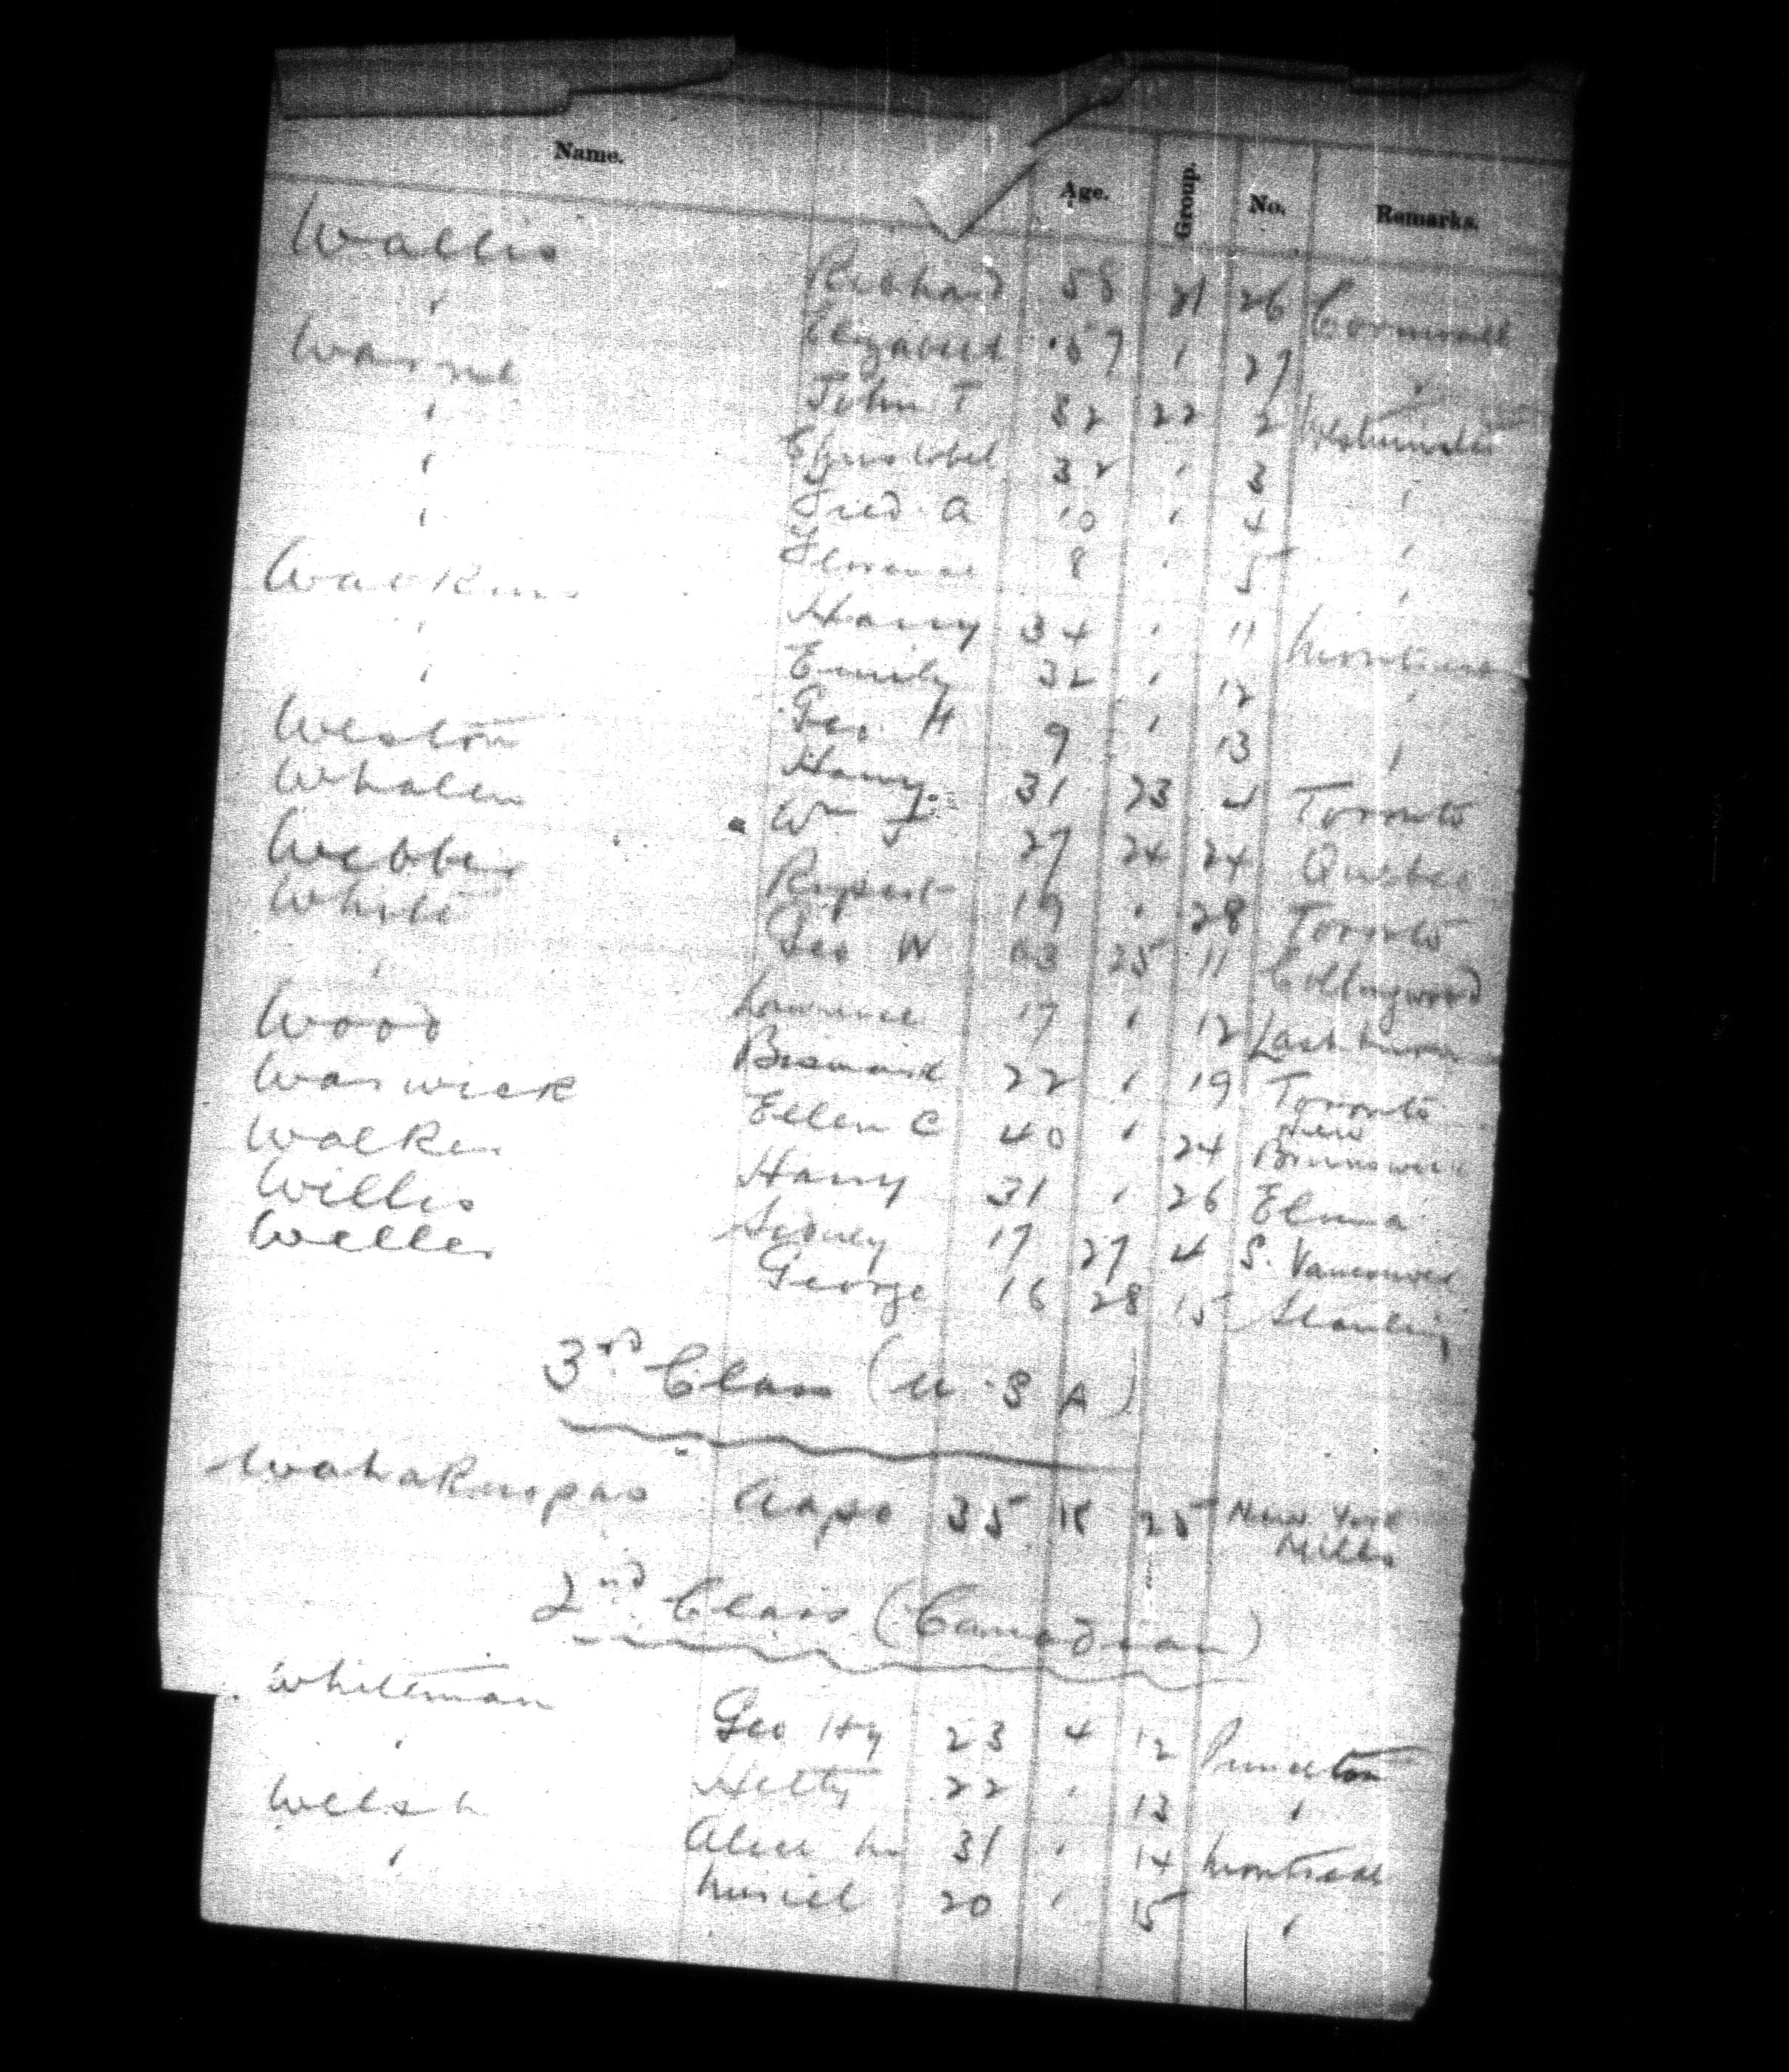 Name. Age. Group. No. Remarks.
Wallis Richard 58 21 26 Cornwall
" Elizabeth 57 " 27 "
Warne John T 32 22 2 Westminster
" Christobel 32 " 3 "
" Fred. A 10 " 4 "
" Florence 8 " 5 "
Watkins Harry 34 " 11 Montreal
" Emily 32 " 12 "
" Geo. H 9 " 13 "
Weston Harry 31 23 4 Toronto
Whalen Wm J. 27 24 24 Quebec
Webber Rupert 19 " 28 Toronto
White Geo W 25 11 Collingwood
" Lawrence 17 " 12
Wood Bismark 22 " 19 Toronto
Warwick Ellen C 40 " 24 New Brunswick
Walker Harry 31 " 26 Elma
Willis Sidney 17 27 4 S. Vancouver
Weller George 16 28 15
3rd Class (U.S A)
Aapo 35 18 25 New York Mills
2nd Class (Canadian)
Whiteman Geo Hy 23 4 12 Princeton
" Hetty 22 " 13 "
Welsh Alice M 31 " 14 Montreal
" Muriel 20 " 15 "